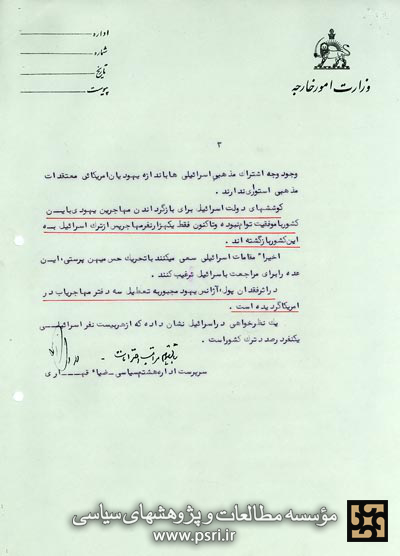 اداره
شماره
تاریخ
پیوست
وزارت امور خارجه
۳
وجود وجه اشتراك مذهبی اسرائیلی ها باندازه یهودیان امریکائی معتقدات
مذهبی استواری ندارند .
کوششهای دولت اسرائیل برای بازگرداندن مهاجرین یهودی باین
کشور با موفقیت توام نبوده و تاکنون فقط یکهزار نفر مهاجر پس از ترك اسرائیل به
این کشور بازگشته اند .
اخیرا" مقامات اسرائیلی سعی میکنند با تحریك حس میهن پرستی ، این
عده را برای مراجعت باسرائیل ترغیب کنند .
در اثر فقدان پول ، آژانس یهود مجبور به تعطیل سه دفتر مهاجریاب در
امریکا گردیده است .
یك نظرخواهی در اسرائیل نشان داده که از هر بیست نفر اسرائیلی
یکنفر در صدد ترك کشور است .
با تقدیم مراتب احترامات
سرپرست اداره هشتم سیاسی - ضیاء
مؤسسه مطالعات و پژوهشهای سیاسی
www.psri.ir